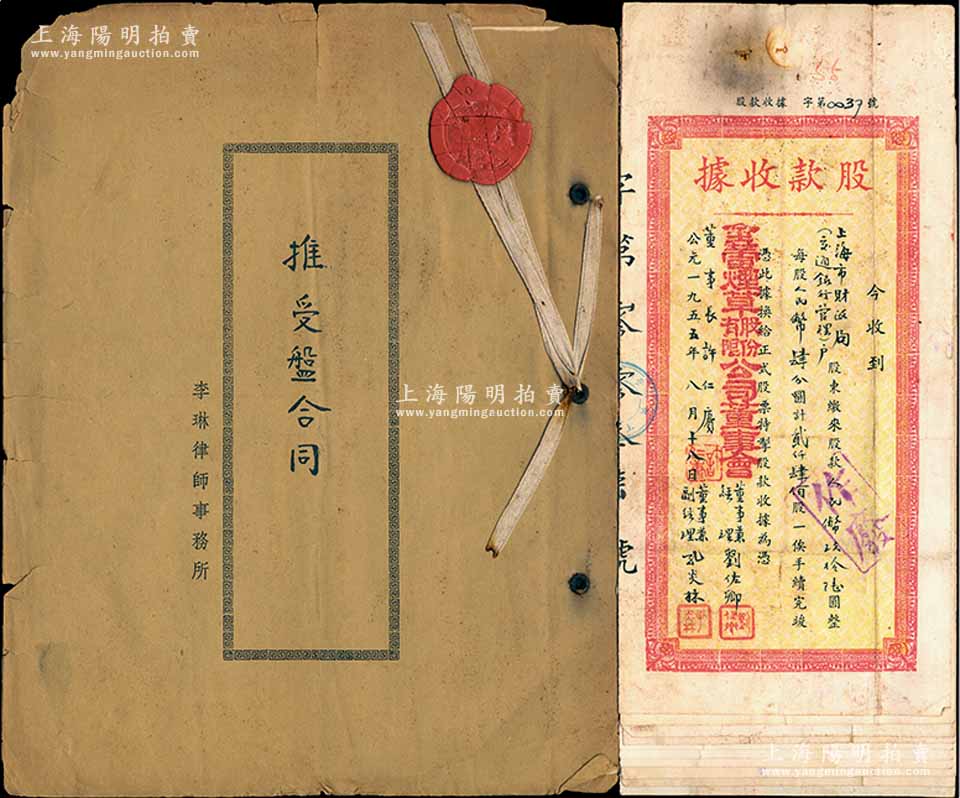 上海陽明拍賣
www.yangmingauction.com
推受盤合同
李琳律師事務所
上海陽明拍賣
www.yangmingauction.com
股款收據 字第0037號
股款收據
今收到
上海市財政局
(交通銀行管理)戶
股東繳來股款人民幣玖拾陸圓整
每股人民幣肆分圓計貳仟肆百股一俟手續完竣
憑此據換給正式股票特掣股款收據為憑
煙草股份有限公司董事會
董事長許仁賡
公元一九五五年八月十八日
董事兼經理劉佐卿
董事兼副經理孔炎林
作廢
上海陽明拍賣
www.yangmingauction.com
上海陽明拍賣
www.yangmingauction.com